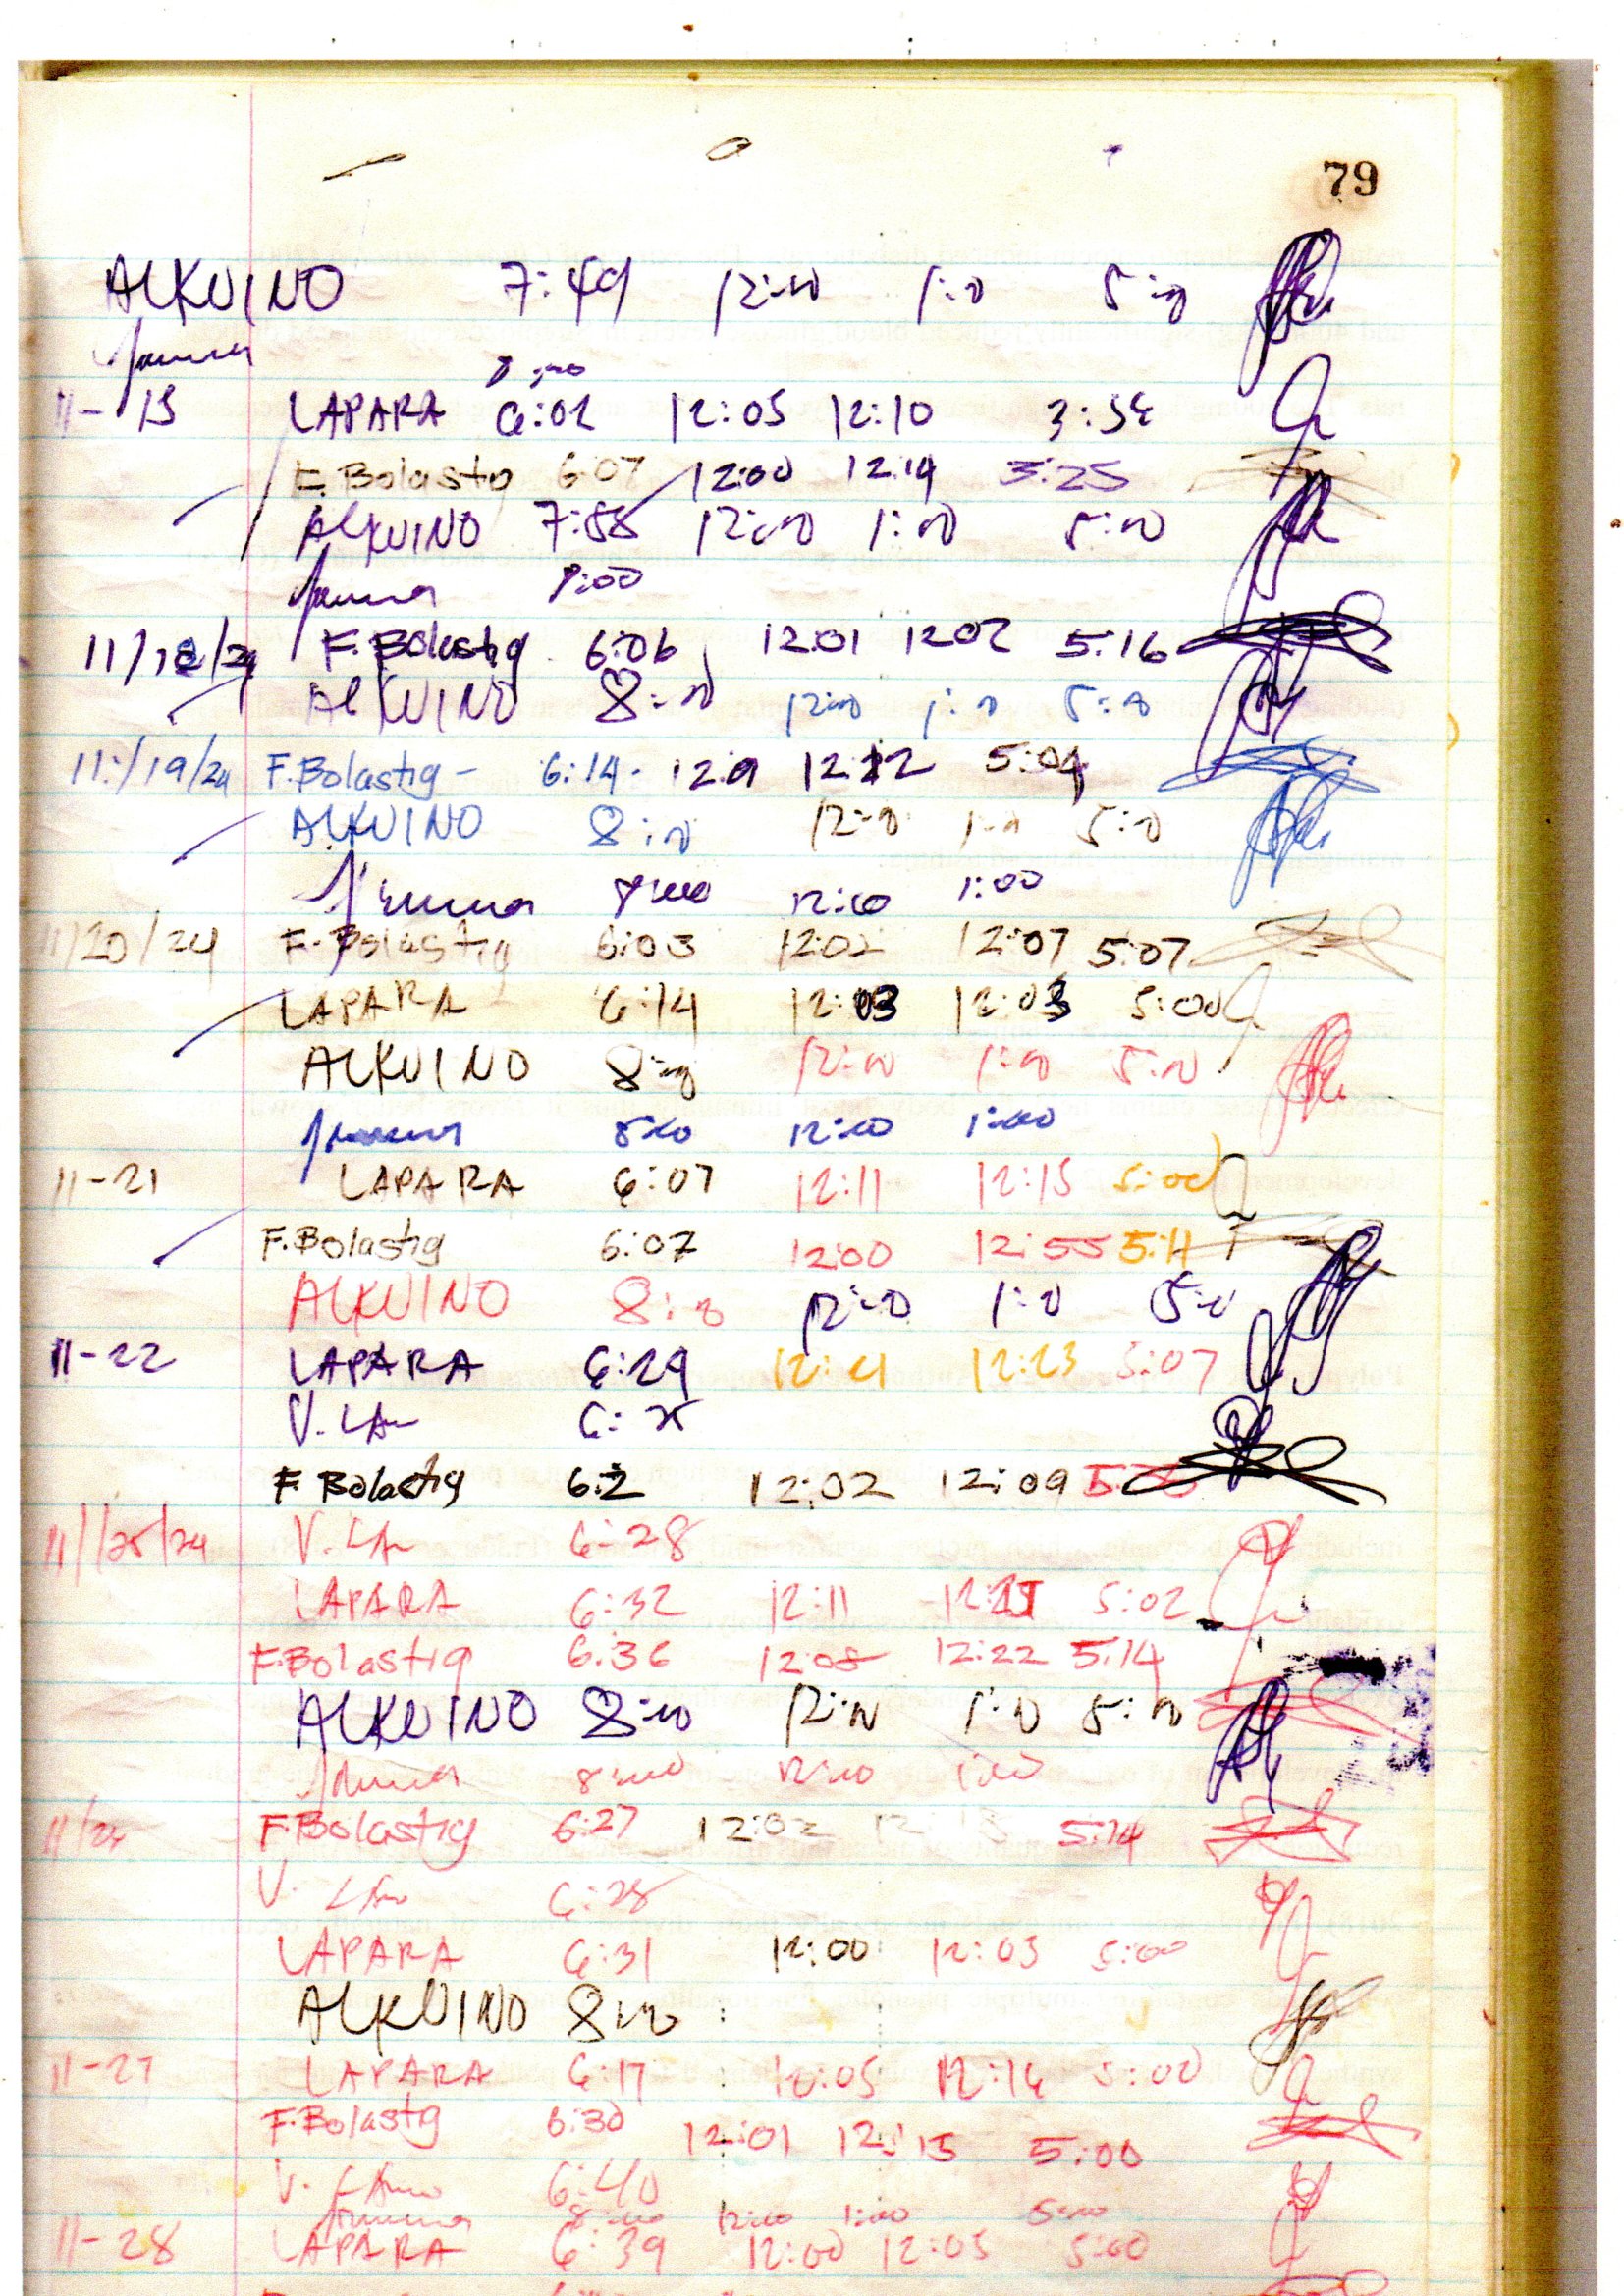 79
ALKUINO 7:49 12:00 1:0 5:0
8:00
11-15 LAPARA 6:02 12:05 12:10 3:34
F. Bolastig 6:07 12:00 12:14 3:25
ALKUINO 7:58 12:00 1:00 5:00
8:00
11/18/24 F. Bolastig 6:06 12:01 12:02 5:16
ALKUINO 8:00 12:00 1:0 5:0
11/19/24 F. Bolastig - 6:14 12:12 5:04
ALKUINO 8:0 12:0 1:0 5:0
8:00 12:00 1:00
11/20/24 F. Bolastig 6:03 12:02 12:07 5:07
LAPARA 6:14 12:03 12:03 5:00
ALKUINO 8:00 12:00 1:00 5:00
8:00 12:00 1:00
11-21 LAPARA 6:07 12:11 12:15 5:00
F. Bolastig 6:07 12:00 12:55 5:11
ALKUINO 8:0 12:0 1:0 5:0
11-22 LAPARA 6:29 12:21 12:23 5:07
V. LAn
F. Bolastig 6:2 12:02 12:09
11/25/24 V. LAn 6:28
LAPARA 6:32 12:11 5:02
F. Bolastig 6:36 12:08 12:22 5:14
ALKUINO 8:00 12:00 1:0 5:00
8:00 12:00 1:00
F. Bolastig 6:27 12:02 5:14
V. LAn 6:28
LAPARA 6:31 12:00 12:03 5:00
ALKUINO 8:00
11-27 LAPARA 6:17 12:05 12:14 5:00
F. Bolastig 6:30 12:01 12:15 5:00
V. 6:40
8:00 12:00 1:00 5:00
11-28 LAPARA 6:39 12:00 12:03 5:00